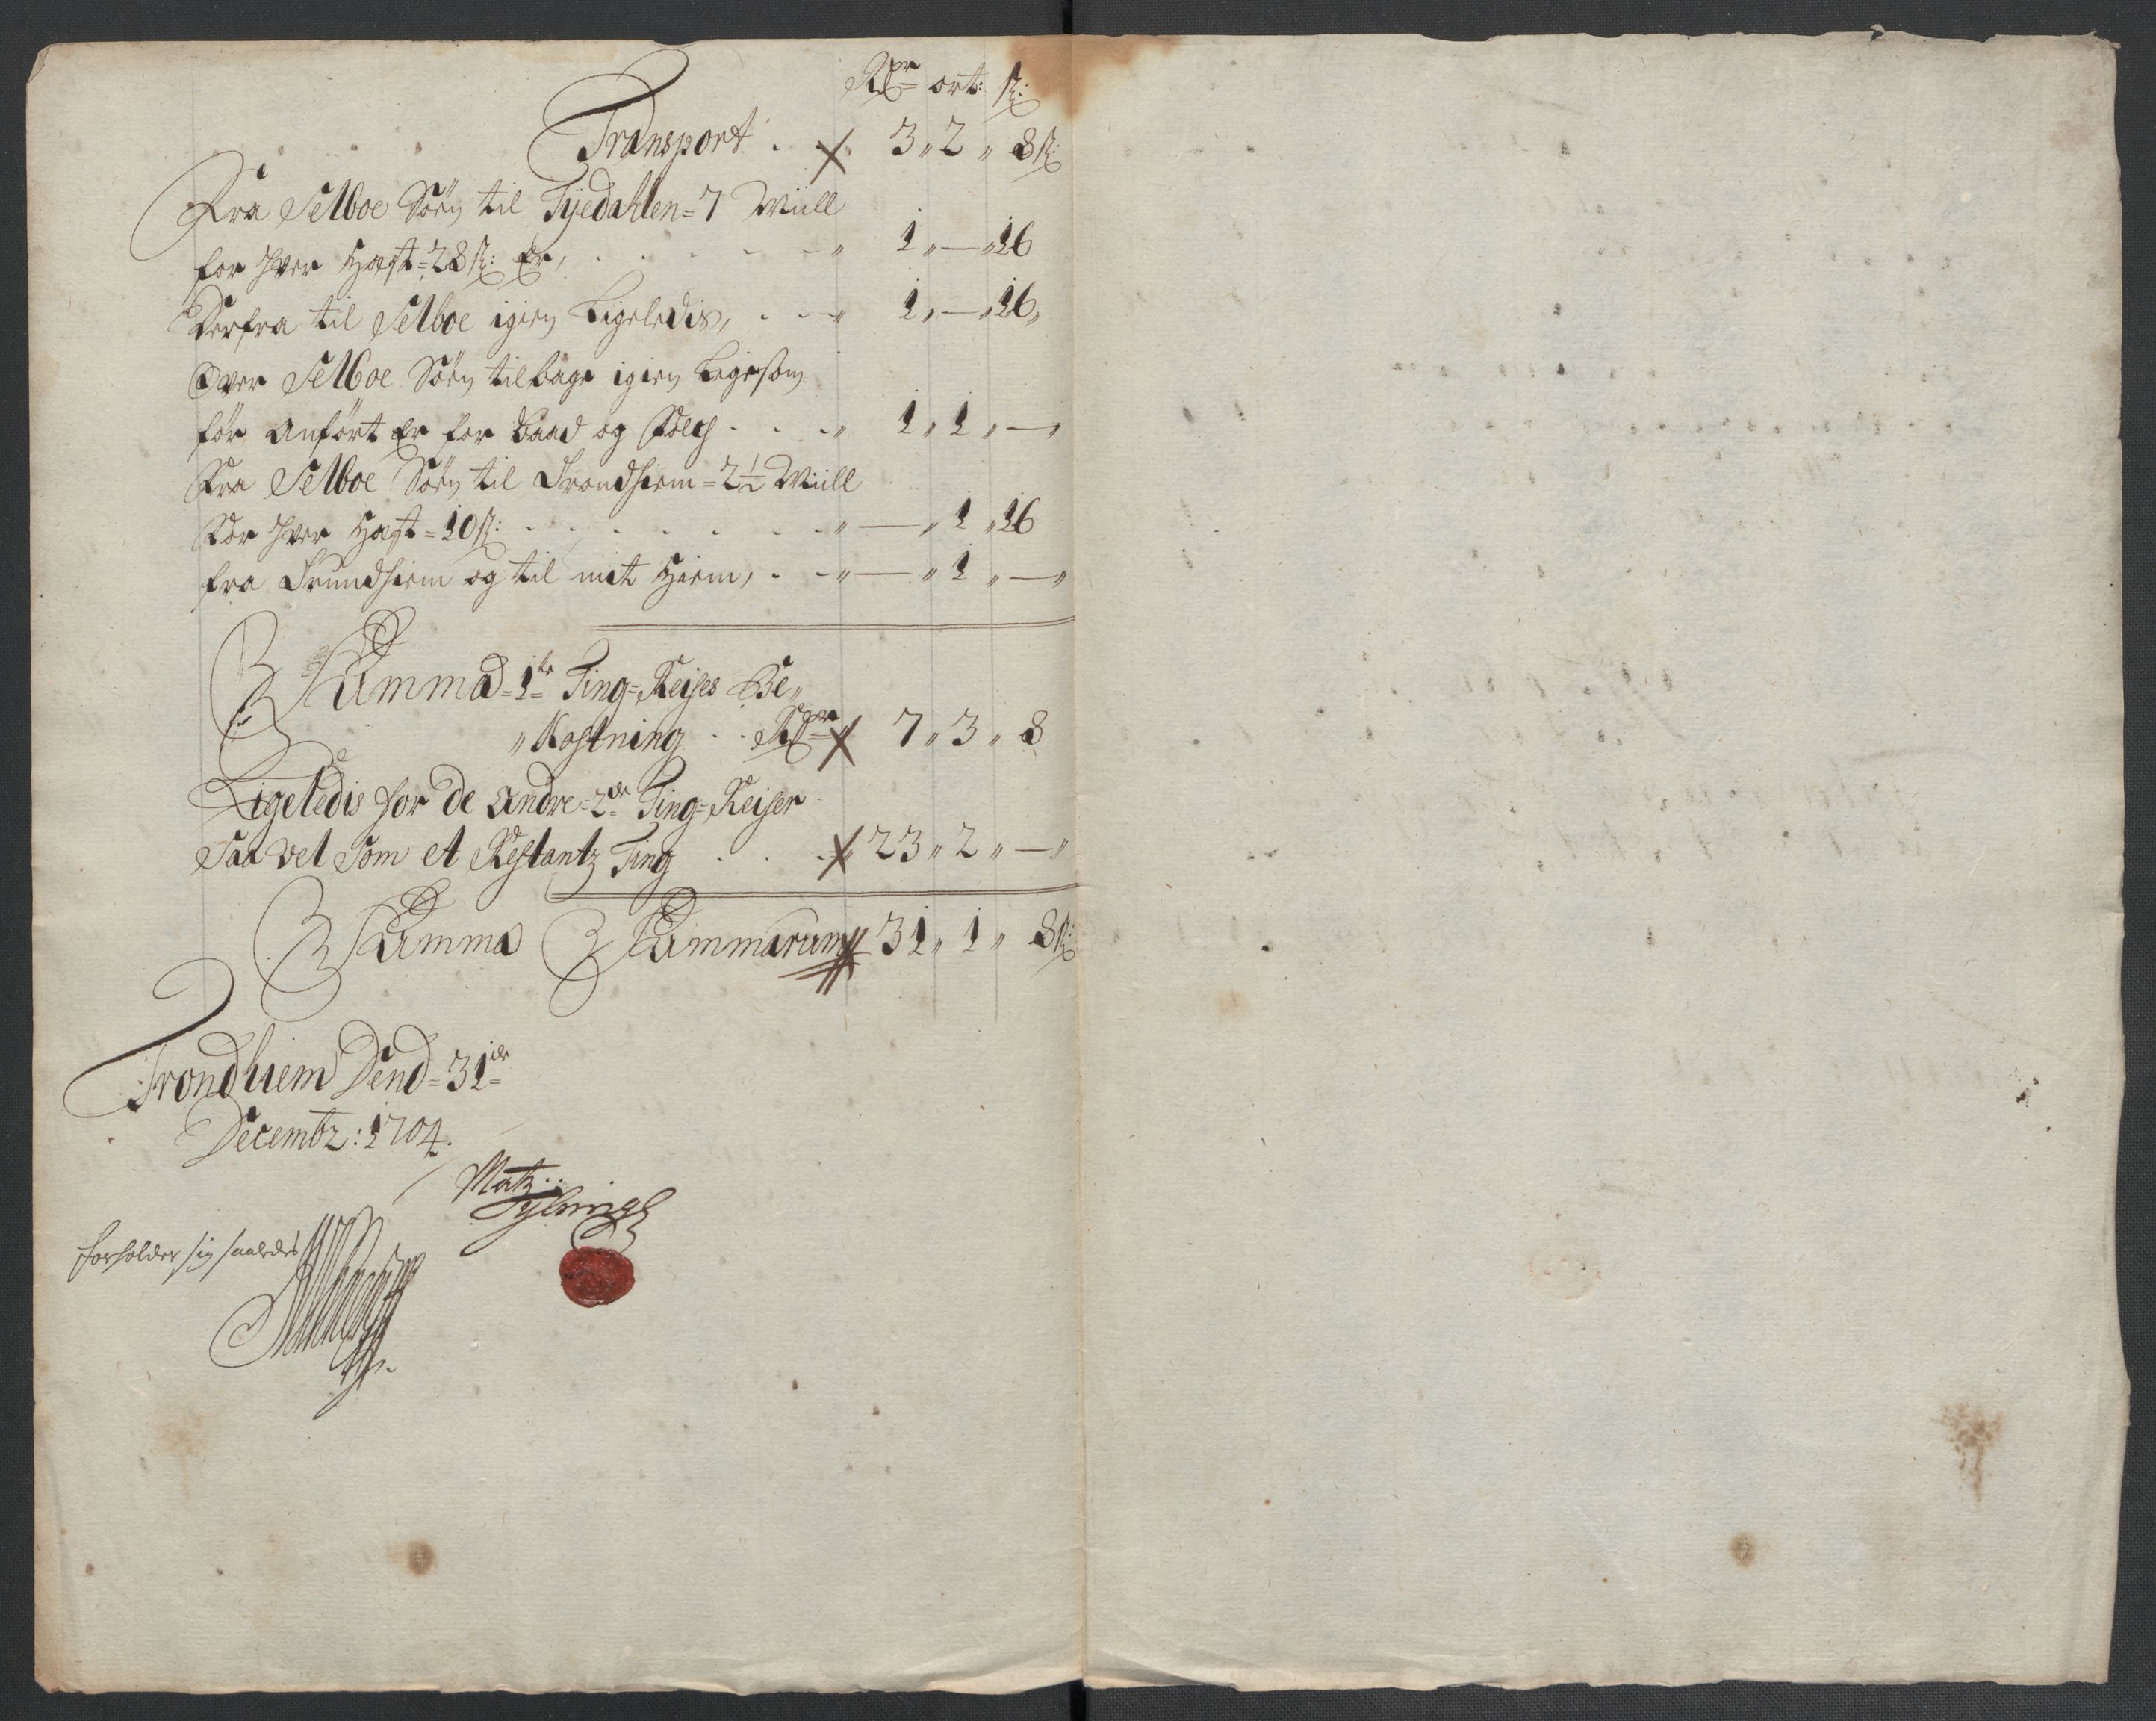 Rdr ort: ß:
Transport . . 3 „ 2 „ 8 ß:
Fra Selboe Söen til Tyedahlen = 7 Miill
for hver Hæst = 28 ß: Er, . . . . . „ 1 „ — „ 16
Derfra til Selboe igien Ligeledis, . . „ 1 „ — „ 16„
Over Selboe Söen tilbage igien Ligesom
før Anført Er for Baad og Folch . . . „ 1 „ 1 „ — „
Fra Selboe Söen til Trondhiem = 2½ Miill
For hver Hæst = 10 ß: . . . . . . „ — „ 1 „ 16
fra Trundhiem og til mit Hiem, . . „ — „ 1 „ — „
Summa = 1te Ting=Reises Be„
„Kostning . . Rdr 7 „ 3 „ 8
Ligeledis for de Andre = 2de Ting=Reiser
Saa vel Som et Restantz Ting . . . 23 „ 2 „ — „
Summa Summarum 31 „ 1 „ 8 ß:
Trondhiem Dend = 31te
Decembr: 1704.
Matz
forholder sig saaledes